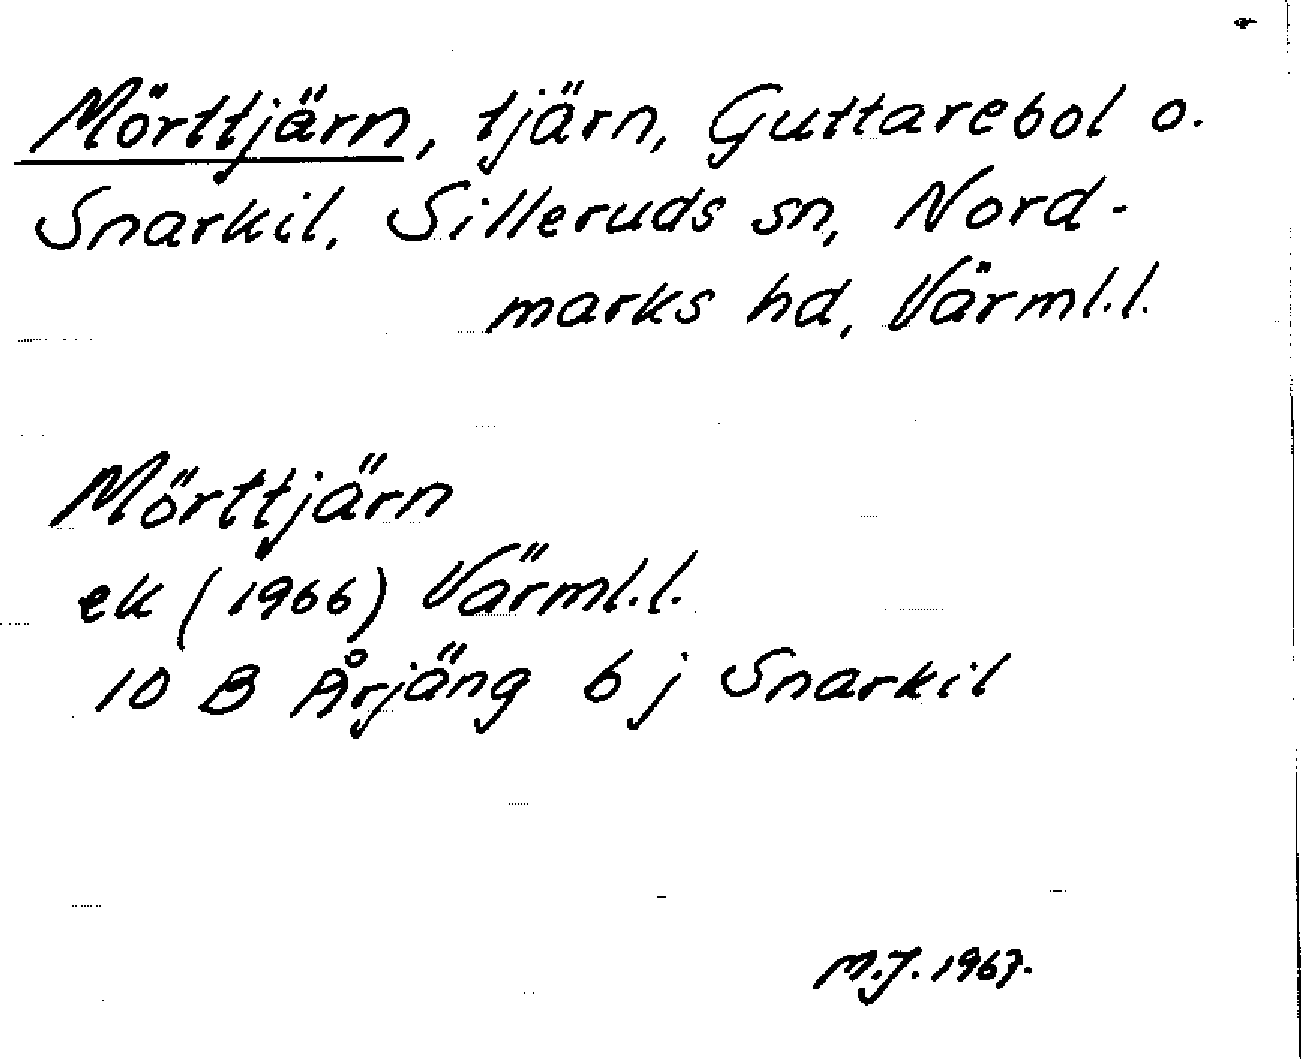 Mörttjärn, tjärn, Guttarebol o.
Snarkil, Silleruds sn, Nord-
marks hd, Värml.l.
Mörttjärn
ek (1966) Värml.l.
10 B Årjäng 6 j Snarkil
M.J. 1967.